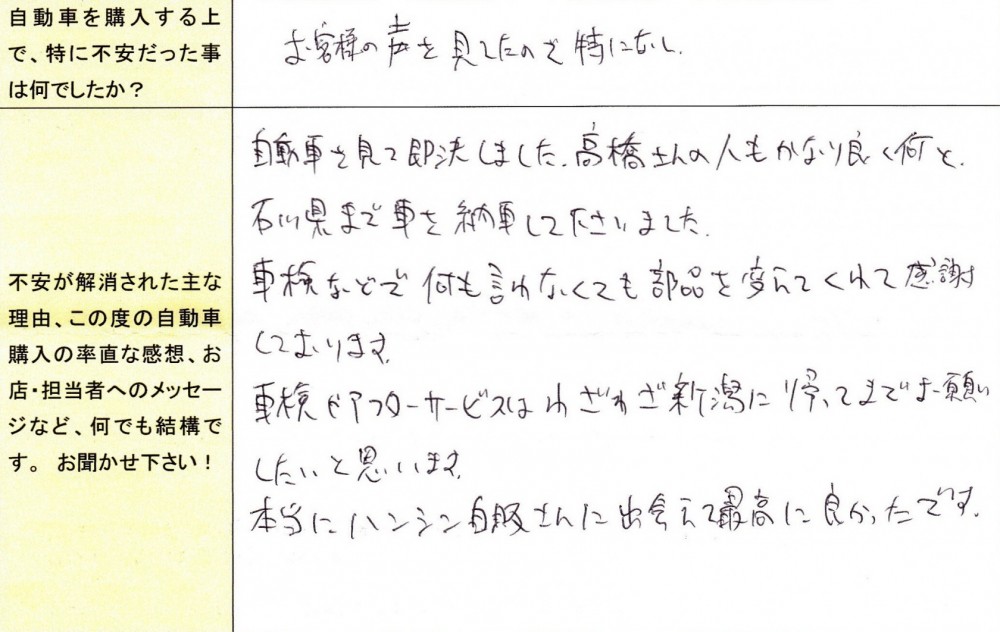 自動車を購入する上
で、特に不安だった事
は何でしたか？
お客様の声を見てたので特になし.
不安が解消された主な
理由、この度の自動車
購入の率直な感想、お
店・担当者へのメッセー
ジなど、何でも結構で
す。 お聞かせ下さい！
自動車を見て即決しました.高橋さんの人もかなり良く何と、
石川県まで車を納車して下さいました.
車検などで何も言わなくても部品を変えてくれて感謝
しております.
車検やアフターサービスはわざわざ新潟に帰ってまでお願い
したいと思います.
本当にハンシン自販さんに出会えて最高に良かったです.